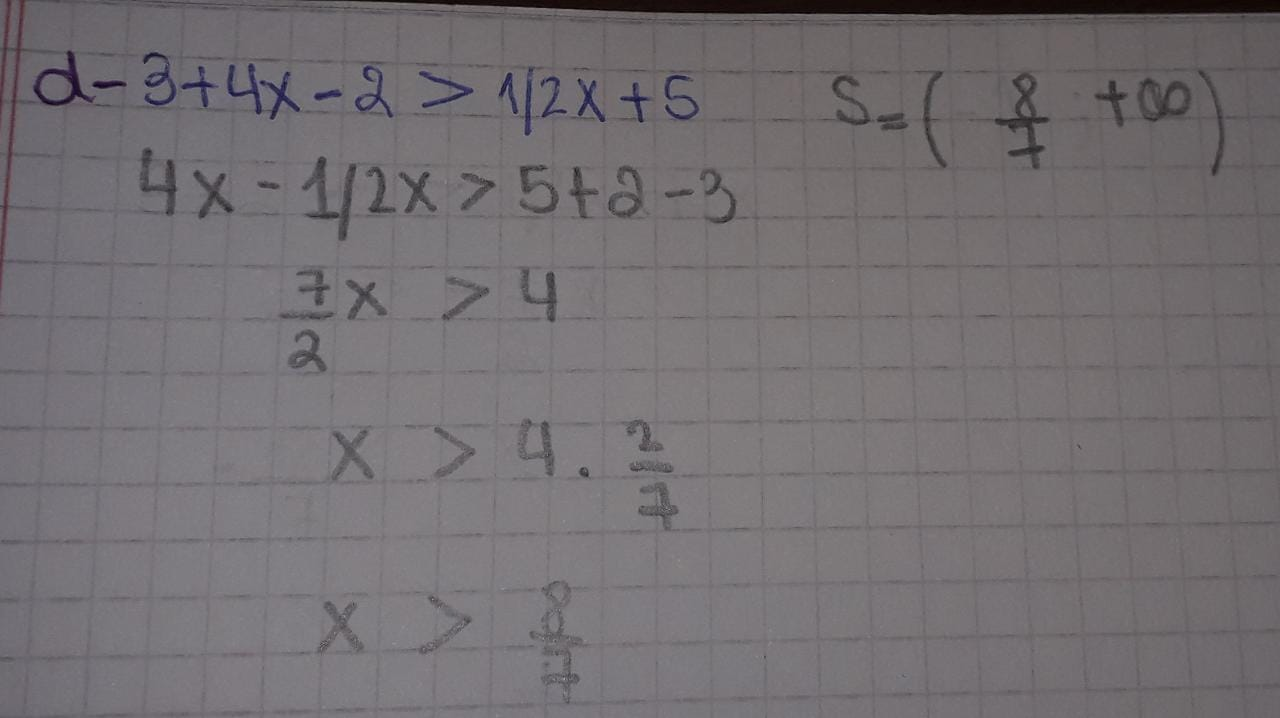 d- 3+4x-2 > 1/2x+5
S=( 8/7 +∞)
4x - 1/2x > 5+2-3
7/2 x > 4
x > 4 . 2/7
x > 8/7